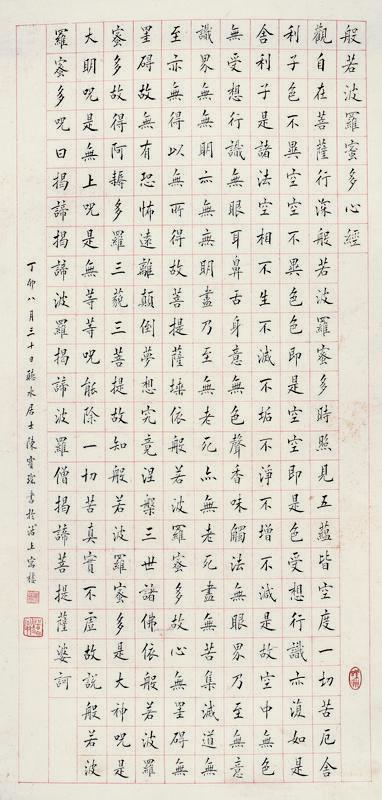 般若波羅蜜多心經
觀自在菩薩行深般若波羅蜜多時照見五蘊皆空度一切苦厄舍
利子色不異空空不異色色即是空空即是色受想行識亦復如是
舍利子是諸法空相不生不滅不垢不淨不增不減是故空中無色
無受想行識無眼耳鼻舌身意無色聲香味觸法無眼界乃至無意
識界無無明亦無無明盡乃至無老死亦無老死盡無苦集滅道無
至亦無得以無所得故菩提薩埵依般若波羅蜜多故心無罣碍無
罣碍故無有恐怖遠離顛倒夢想究竟涅槃三世諸佛依般若波羅
蜜多故得阿耨多羅三藐三菩提故知般若波羅蜜多是大神咒是
大明咒是無上咒是無等等咒能除一切苦真實不虛故說般若波
羅蜜多咒曰揭諦揭諦波羅揭諦波羅僧揭諦菩提薩婆訶
丁卯八月三十日聽水居士陳寶琛書於滬上寓樓